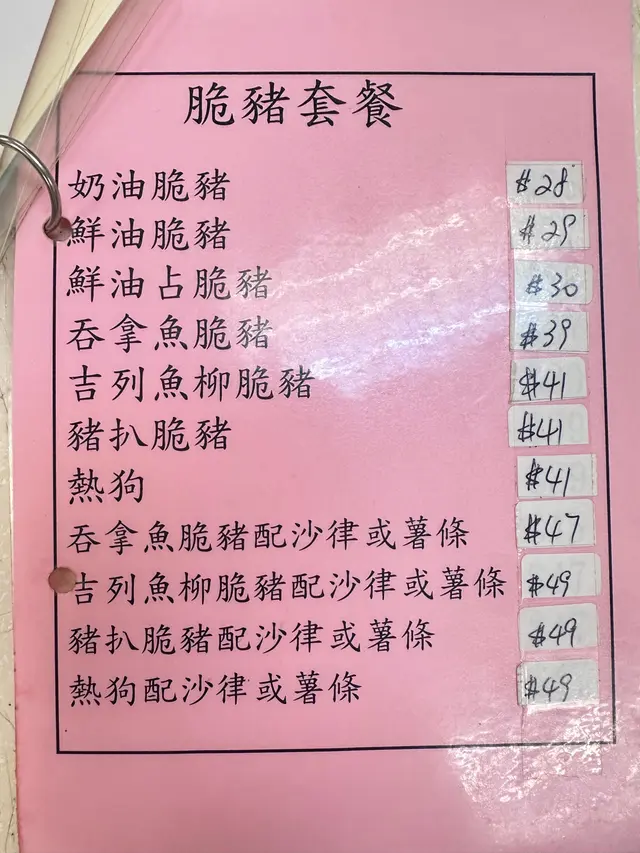 脆豬套餐
奶油脆豬 $28
鮮油脆豬 $29
鮮油占脆豬 $30
吞拿魚脆豬 $39
吉列魚柳脆豬 $41
豬扒脆豬 $41
熱狗 $41
吞拿魚脆豬配沙律或薯條 $47
吉列魚柳脆豬配沙律或薯條 $49
豬扒脆豬配沙律或薯條 $49
熱狗配沙律或薯條 $49